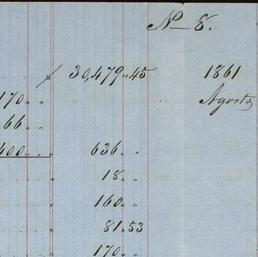 N- 8.
$ 30,479..45 1861
170 .. .. Agosto
66 .. ..
400 .. .. 636 .. ..
18 .. ..
160 .. ..
81.53
170 .. ..